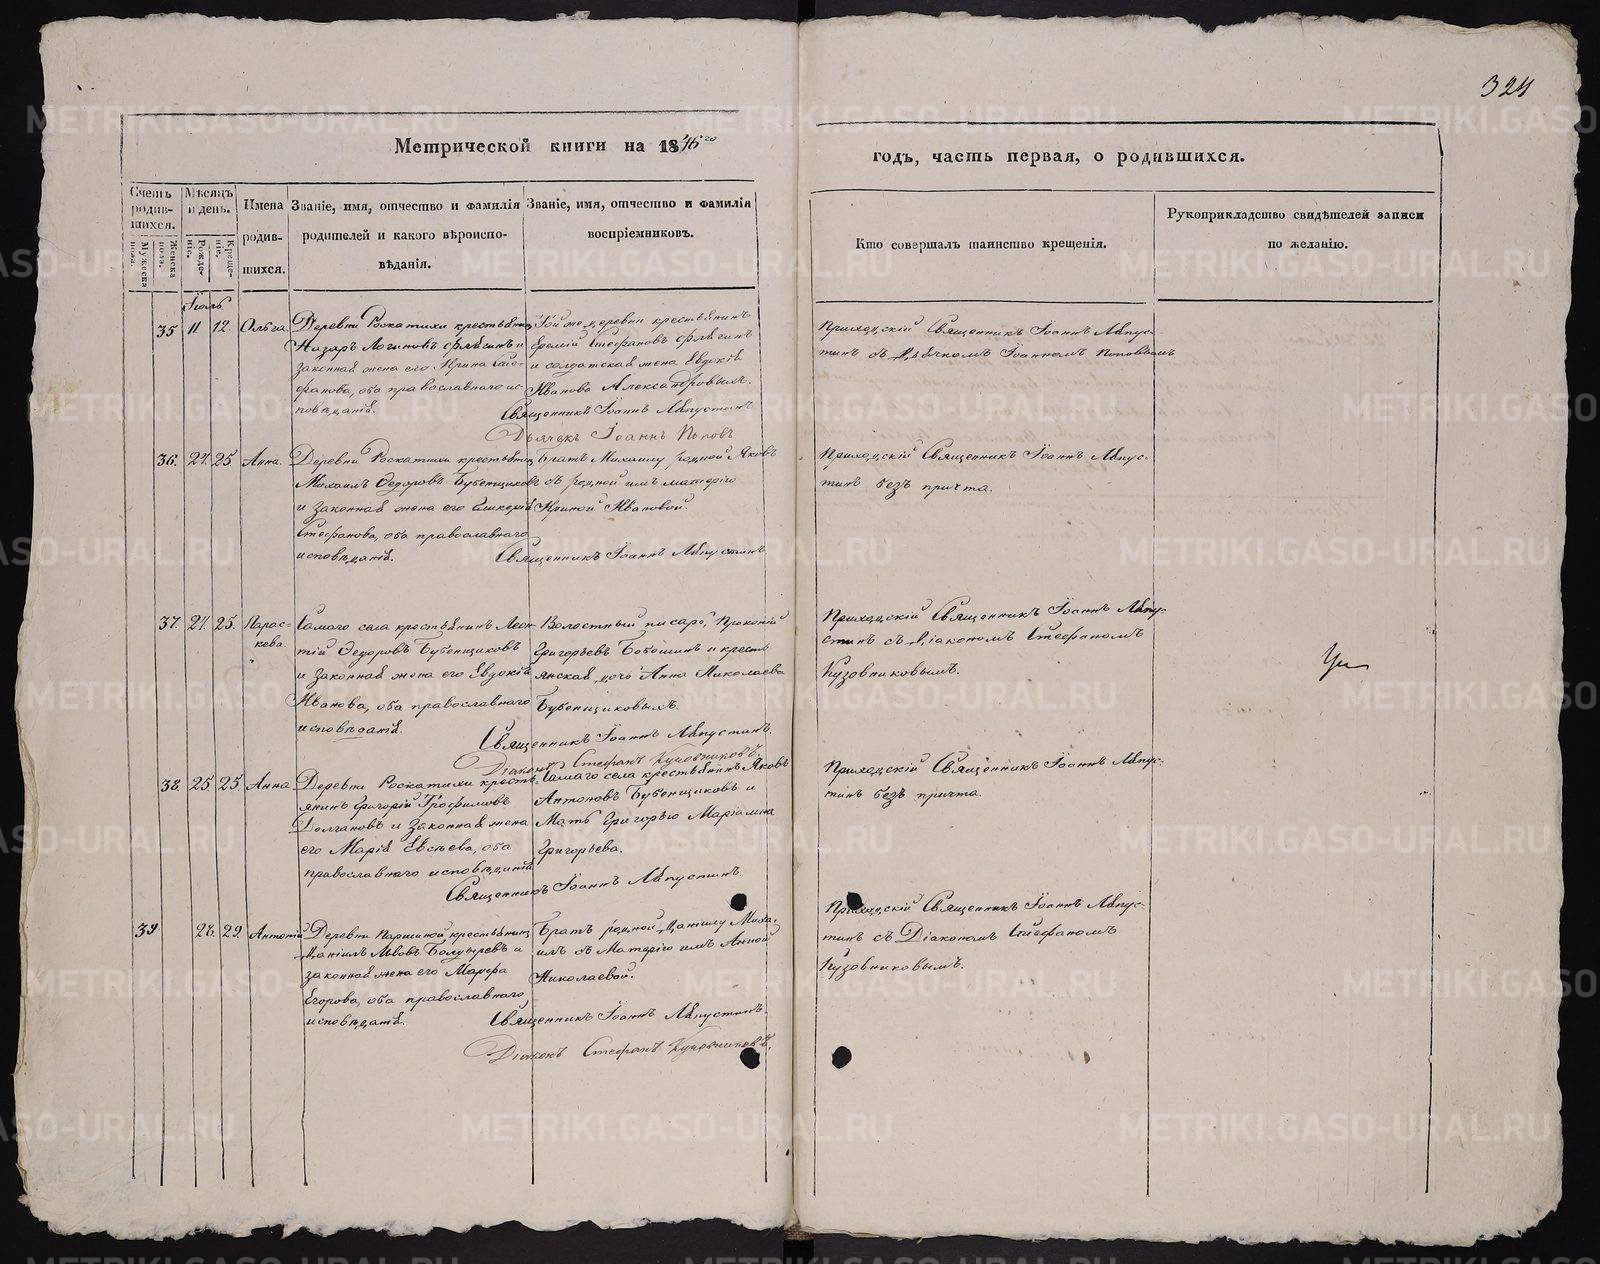 324
Метрической книги на 1846го
годъ, часть первая, о родившихся.
Счетъ родив-шихся.
Мужеска пола.
Женска пола.
Мѣсяцъ и день.
Рожде-ніе.
Креще-ніе.
Имена родив-шихся.
Званіе, имя, отчество и фамилія
родителей и какого вѣроиспо-
вѣданія.
Званіе, имя, отчество и фамилія
воспріемниковъ.
Кто совершалъ таинство крещенія.
Рукоприкладство свидѣтелей записи
по желанію.
Іюль
35 11 12 Ольга
Деревни Роскатихи крестьянинъ
Назаръ Логиновъ и
законная жена его Ирина Сте-
фанова, оба православнаго ис-
повѣданія.
Той же деревни крестьянинъ
Еремій Стефановъ
и солдатская жена Евдокія
Иванова Александровыхъ.
Священникъ Іоаннъ
Дьячекъ Іоаннъ Поповъ
Приходскій Священникъ Іоаннъ
съ Дьячкомъ Іоанномъ Поповымъ
36. 24. 25. Анна.
Деревни Роскатихи крестьянинъ
Михаилъ Федоровъ Бубенщиковъ
и законная жена его
Стефанова, оба православнаго
исповѣданія.
Братъ Михаилу родной Яковъ
съ родной имъ матерію
Ириной Ивановой.
Священникъ Іоаннъ
Приходскій Священникъ Іоаннъ
безъ причта.
37. 24. 25. Парас-
кева.
Самаго села крестьянинъ Леон-
тій Федоровъ Бубенщиковъ
и законная жена его Евдокія
Иванова, оба православнаго
исповѣданія.
Волостный писарь Прокопій
Григорьевъ и кресть-
янская дочь Анна Николаева
Бубенщиковыхъ.
Священникъ Іоаннъ
Діаконъ Стефанъ Кузовниковъ.
Приходскій Священникъ Іоаннъ
съ Діакономъ Стефаномъ
Кузовниковымъ.
38. 25. 25. Анна
Деревни Роскатихи кресть-
янинъ Григорій Трофимовъ
Долгановъ и законная жена
его Марія Евсѣева, оба
православнаго исповѣданія
Самаго села крестьянинъ Яковъ
Антоновъ Бубенщиковъ и
Мать Григорью Маріамна
Григорьева.
Священникъ Іоаннъ
Приходскій Священникъ Іоаннъ
безъ причта.
39 28. 29. Антоній
Деревни Паршиной крестьянинъ
Даніилъ Львовъ Болдыревъ и
законная жена его Марфа
Егорова, оба православнаго
исповѣданія.
Братъ родной Даніилу Миха-
илъ съ Матерію имъ Анной
Николаевой.
Священникъ Іоаннъ
Діаконъ Стефанъ Кузовниковъ.
Приходскій Священникъ Іоаннъ
съ Діакономъ Стефаномъ
Кузовниковымъ.
METRIKI.GASO-URAL.RU